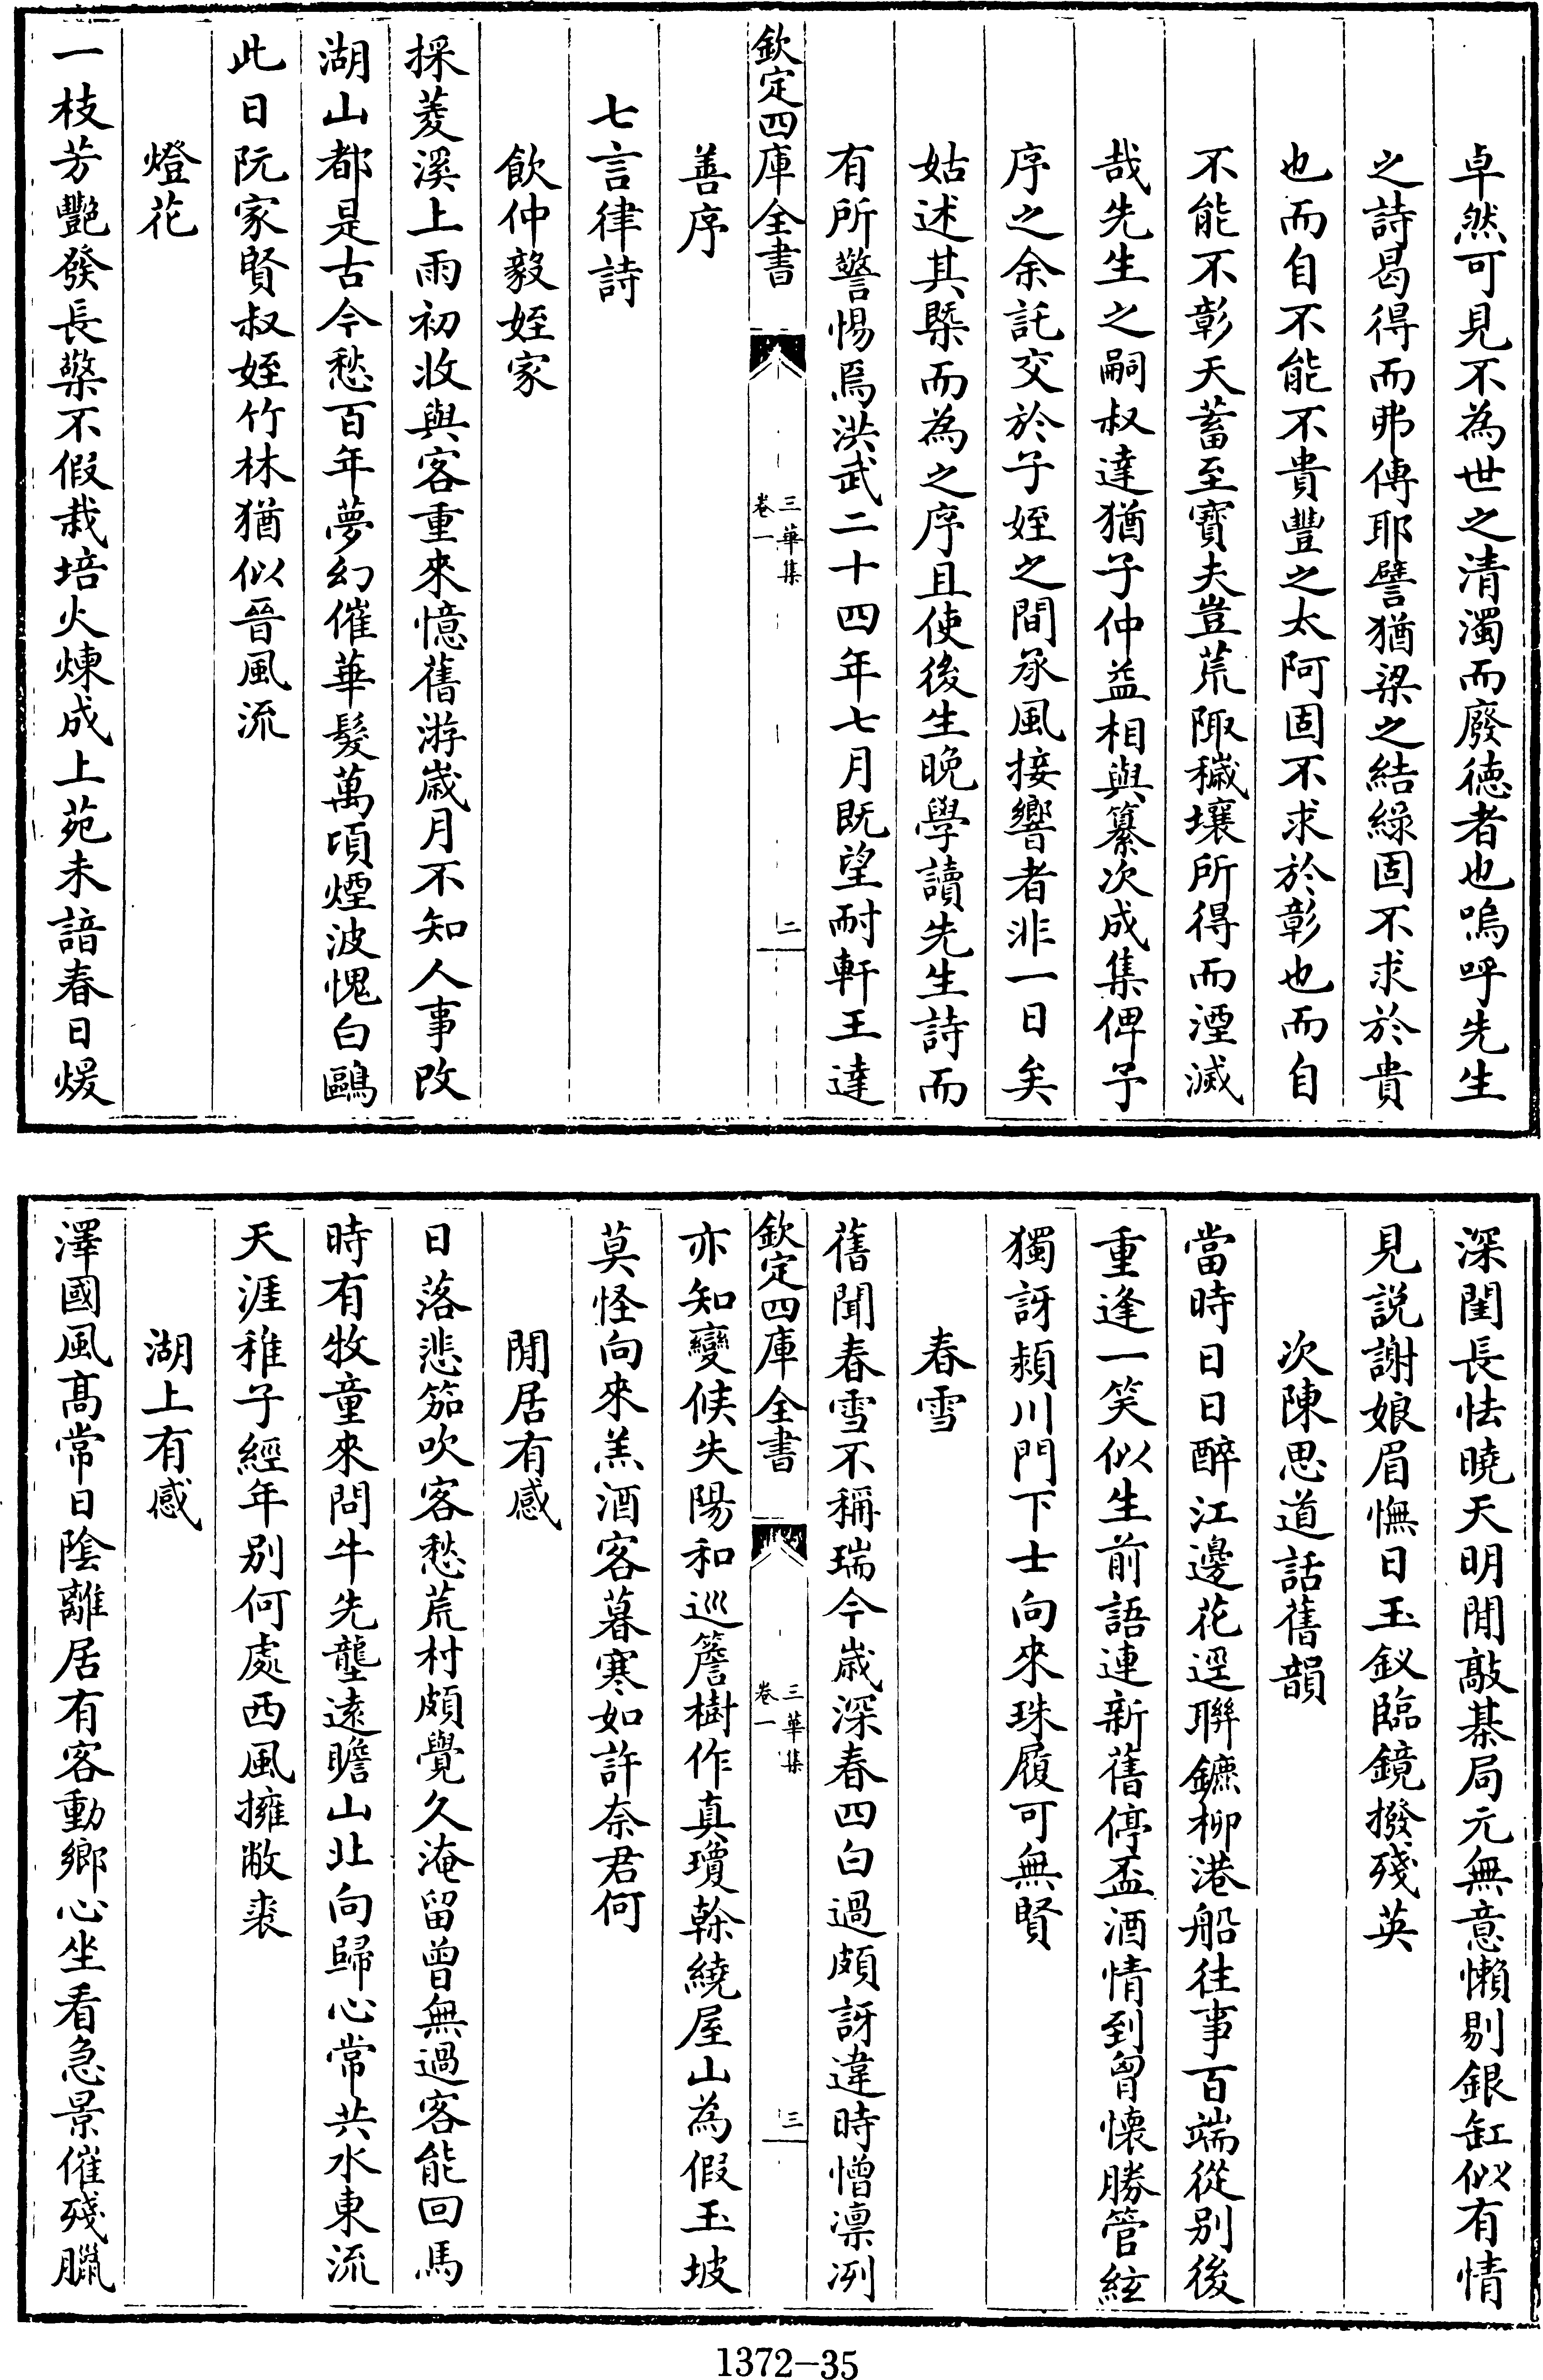 卓然可見不為世之清濁而廢徳者也嗚呼先生
之詩曷得而弗傳耶譬猶梁之結綠固不求於貴
也而自不能不貴豐之太阿固不求於彰也而自
不能不彰天蓄至寳夫豈荒陬穢壤所得而湮滅
哉先生之嗣叔達猶子仲益相與纂次成集俾予
序之余託交於子姪之間承風接響者非一日矣
姑述其槩而為之序且使後生晚學讀先生詩而
有所警惕焉洪武二十四年七月既望耐軒王達
欽定四庫全書
三華集
卷一
二
善序
七言律詩
飲仲毅姪家
採菱溪上雨初收與客重來憶舊游嵗月不知人事改
湖山都是古今愁百年夢幻催華髮萬頃煙波愧白鷗
此日阮家賢叔姪竹林猶似晉風流
燈花
一枝芳艷發長檠不假栽培火煉成上苑未諳春日煖
深閨長怯曉天明閒敲棊局元無意懶剔銀缸似有情
見説謝娘眉憮日玉釵臨鏡撥殘英
次陳思道話舊韻
當時日日醉江邊花逕聯鑣柳港船往事百端從别後
重逢一笑似生前語連新舊停盃酒情到胷懐勝管絃
獨訝潁川門下士向來珠履可無賢
春雪
舊聞春雪不稱瑞今嵗深春四白過頗訝違時憎凛冽
欽定四庫全書
三華集
卷一
三
亦知變候失陽和巡簷樹作真瓊幹繞屋山為假玉坡
莫怪向來羔酒客暮寒如許奈君何
閒居有感
日落悲笳吹客愁荒村頗覺久淹留曾無過客能回馬
時有牧童來問牛先壟遠瞻山北向歸心常共水東流
天涯稚子經年别何處西風擁敝裘
湖上有感
澤國風髙常日陰離居有客動鄉心坐看急景催殘臘
1372-35